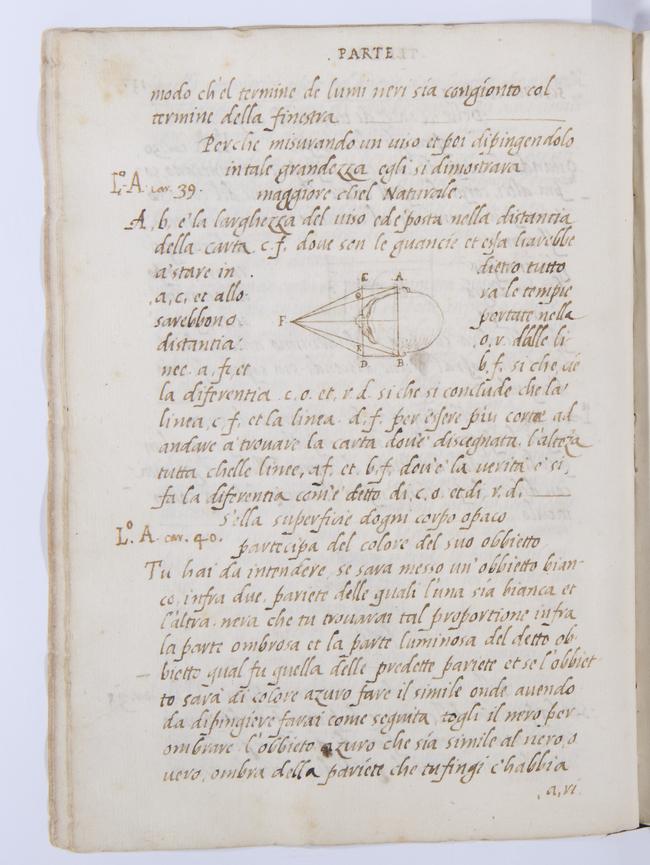 PARTE
modo ch'el termine de lumi neri sia congionto col
termine della finestra
Perche misurando un viso et poi dipingendolo
in tale grandezza egli si dimostrara
L.º A. car. 39. maggiore ch'el Naturale.
A, b, e' la larghezza del viso ed e' posta nella distantia
della carta c. f. dove son le guancie et essa harebbe
a' stare in dietro tutto
.a, c, et allo ra le tempie
sarebbono portate nella
distantia o, r. dalle li-
nee. a, f, et b, f. si che, c'e
la diferentia c, o. et, r. d. si che si conclude che la
linea, c, f. et la linea. d, f. per essere piu corta ad
andare a' trovare la carta dov'e' discegnata l'alteza
tutta che lle linee, a f. et. b, f. dov'e la verita e' si,
fa la diferentia com'e detto di, c, o. et di, r, d.
S'ella superficie d'ogni corpo opaco
L.º A. car. 40. partecipa del colore del suo obbietto
Tu hai da intendere, se sara messo un' obbietto bian-
co, infra due, pariete delle quali l'una sia bianca et
l'altra nera che tu trovarai tal proportione infra
la parte ombrosa et la parte luminosa del detto ob-
bietto qual fu quella delle predette pariete et se l'obbiet-
to sara di colore azuro fare il simile onde, avendo
da dipingiere farai come seguita, togli il nero per
ombrare l'obbieto azuro che sia simile al nero, o
vero, ombra della pariete che tu fingi c'habbia
, a, ri
C A
O
F
R
D B